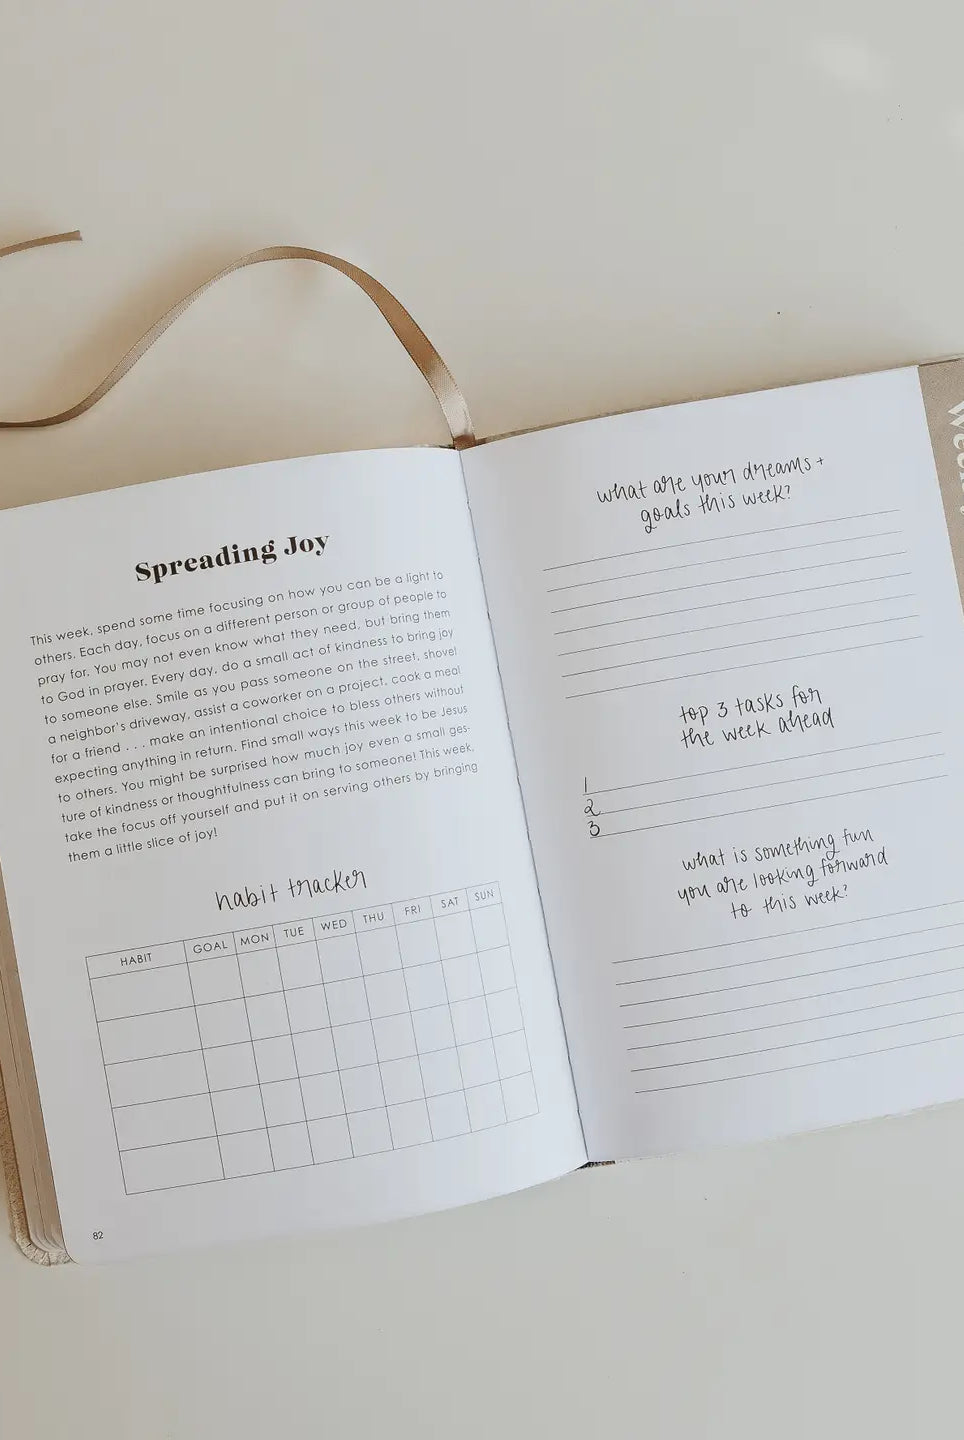 Spreading Joy
This week, spend some time focusing on how you can be a light to
others. Each day, focus on a different person or group of people to
pray for. You may not even know what they need, but bring them
to God in prayer. Every day, do a small act of kindness to bring joy
to someone else. Smile as you pass someone on the street, shovel
a neighbor's driveway, assist a coworker on a project, cook a meal
for a friend . . . make an intentional choice to bless others without
expecting anything in return. Find small ways this week to be Jesus
to others. You might be surprised how much joy even a small ges-
ture of kindness or thoughtfulness can bring to someone! This week,
take the focus off yourself and put it on serving others by bringing
them a little slice of joy!
habit tracker
HABIT GOAL MON TUE WED THU FRI SAT SUN
82
what are your dreams +
goals this week?
top 3 tasks for
the week ahead
1
2
3
what is something fun
you are looking forward
to this week?